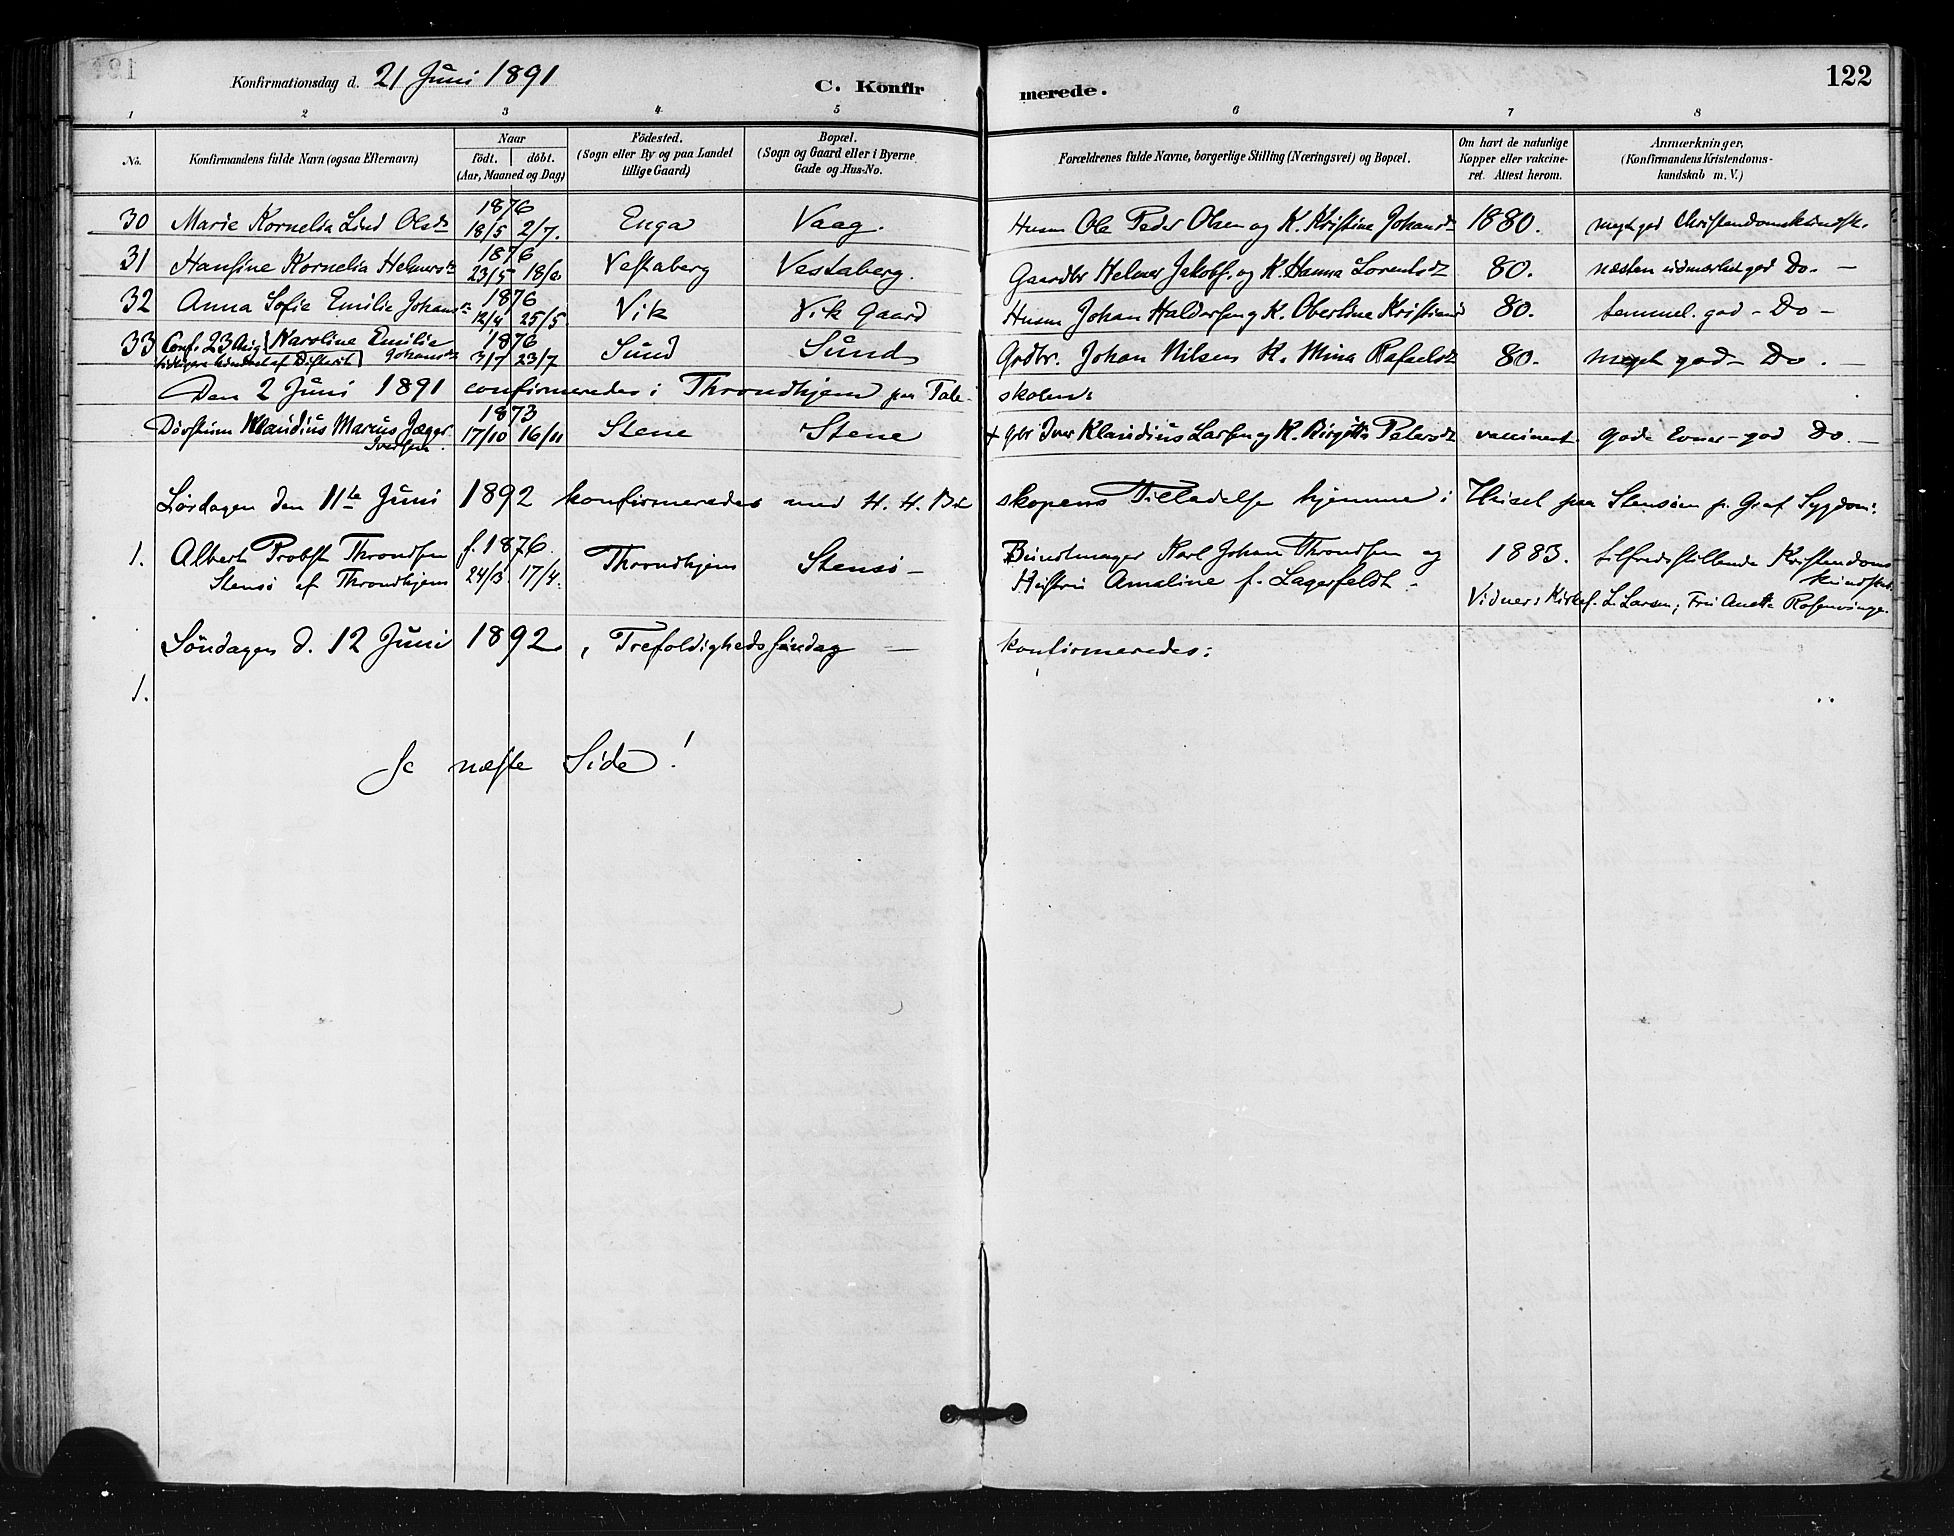 Konfirmationsdag d. 21 Juni 1891
C. Konfirmerede.
122
1 2 3 4 5 6 7 8
No.
Konfirmandens fulde Navn (ogsaa Efternavn)
Naar
födt. döbt.
(Aar, Maaned og Dag)
Födested.
(Sogn eller By og paa Landet
tillige Gaard)
Bopæl.
(Sogn og Gaard eller i Byerne
Gade og Hus-No.
Forældrenes fulde Navne, borgerlige Stilling (Næringsvei) og Bopæl.
Om havt de naturlige
Kopper eller vakcine-
ret. Attest herom.
Anmærkninger,
(Konfirmandens Kristendoms-
kundskab m. V.)
30 Marie Kornelia Lind Olsdt 1876 18/5 2/7. Enga Vaag. Husm Ole Peder Olsen og K. Kristine Johansdt 1880. meget god Christendomskundsk.
31 Hansine Kornelia Helmersdt 1876 23/5 18/6 Vestaberg Vestaberg. Gaardbr Helmer Jakobs. og K. Hanna Lorentsdt 80. næsten udmærket god Do. —
32 Anna Sofie Emilie Johansdt 1876 12/4 25/5 Vik Vik Gaard Husm Johan Haldorsen og K. Obertine Kristiansd 80. temmel. god - Do -
33 Conf. 23 Aug Karoline Emilie Johansdt 1876 3/7 23/7 Sund Sund Grdbr. Johan Nilsen K. Mina Rafaelsdt 80. meget god - Do. —
tidligere hindret af Difterit
Den 2 Juni 1891 confirmeredes i Throndhjem paa Taleskolen:
Døvstum Klaudius Marius Jæger Iversen. 1873 17/10 16/11 Stene Stene + Gbr Iver Klaudius Larsen og K. Birgitte Petersdt vaccineret gode Evner - god Do. —
Lørdagen den 11te Juni 1892 konfirmeredes med H. H. Biskopens Tilladelse hjemme i Huset paa Stensøen p. Graf Sygdom:
1. Albert Probst Throndsen f. 1876. 24/3 17/4. Throndhjem Stensø - Bundtmager Karl Johan Throndsen og 1883. tilfredsstillende Kristendoms
Stensø af Throndhjem Hustru Amaline f. Lagerfeldt. kundskab.
Vidner: Kirkes. L. Larsen; Fru Anette Rosenvinge.
Søndagen d. 12 Juni 1892, Trefoldigheds Søndag — konfirmeredes:
1.
Se næste Side!